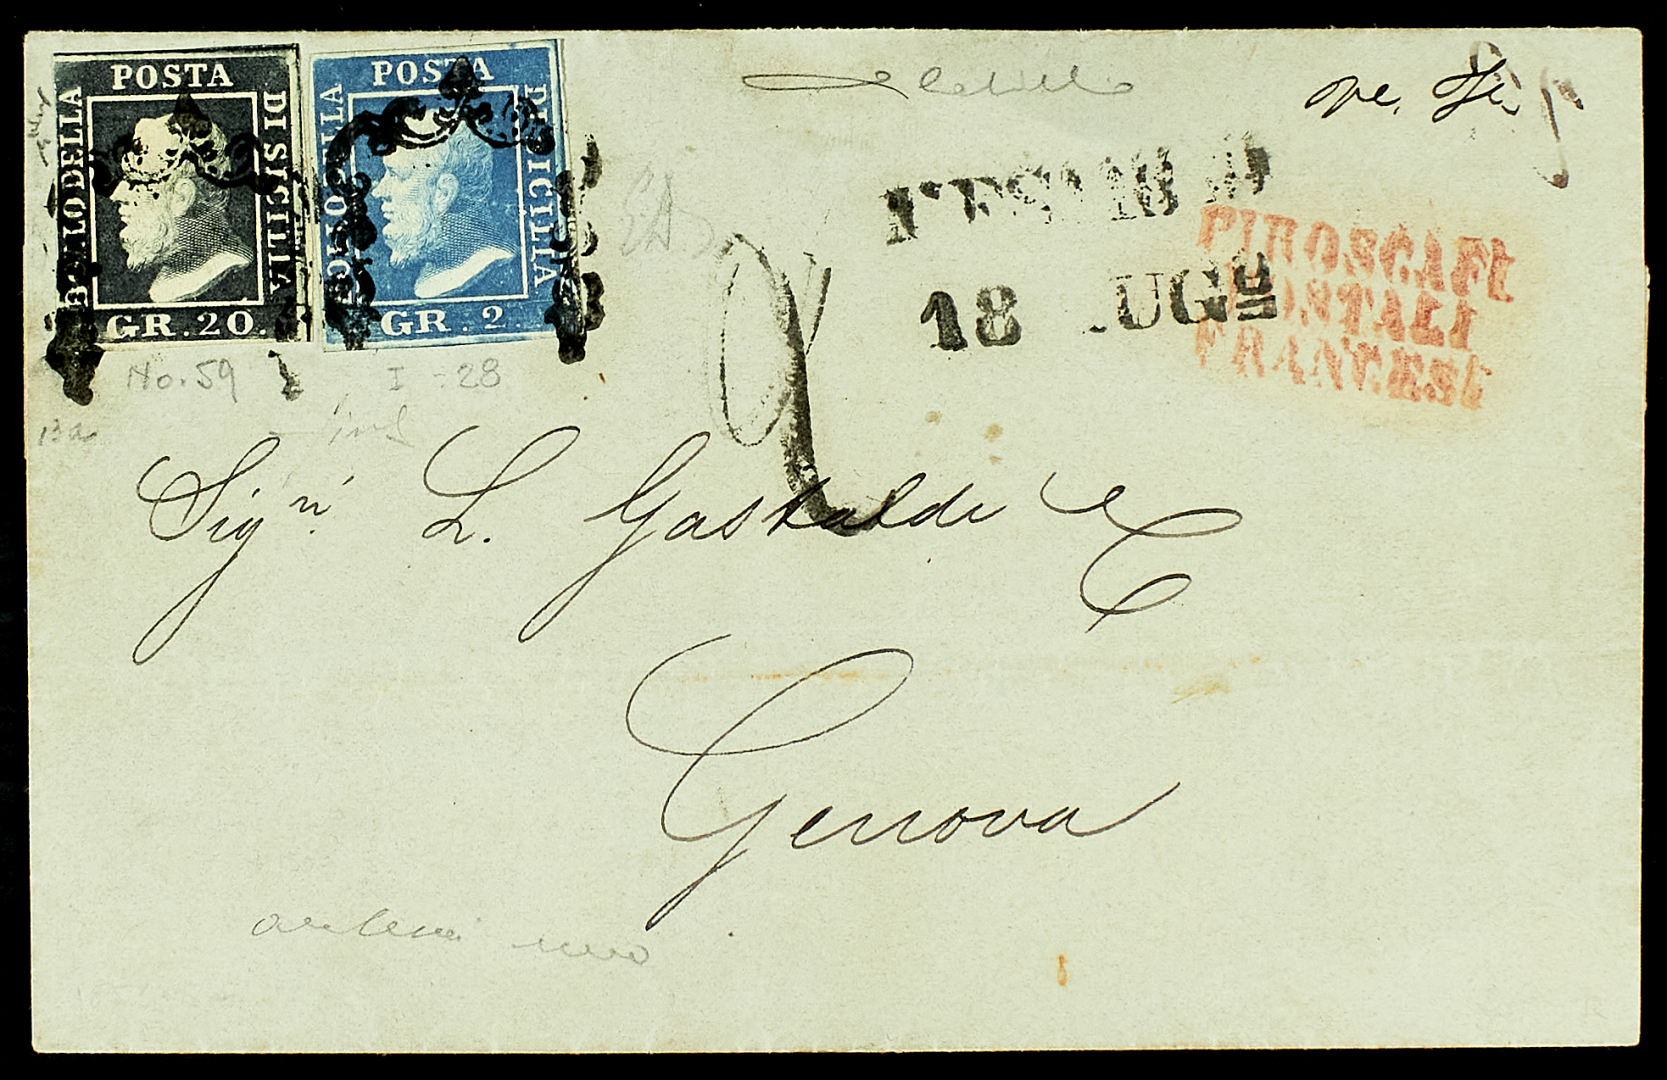 POSTA
BOLLO DELLA
DI SICILIA
GR. 20.
POSTA
BOLLO DELLA
DI SICILIA
GR. 2.
No. 59
I - 28
13a
18 LUG.
PIROSCAFI
POSTALI
FRANCESI
Sig.ri L. Gastaldi e C
Genova